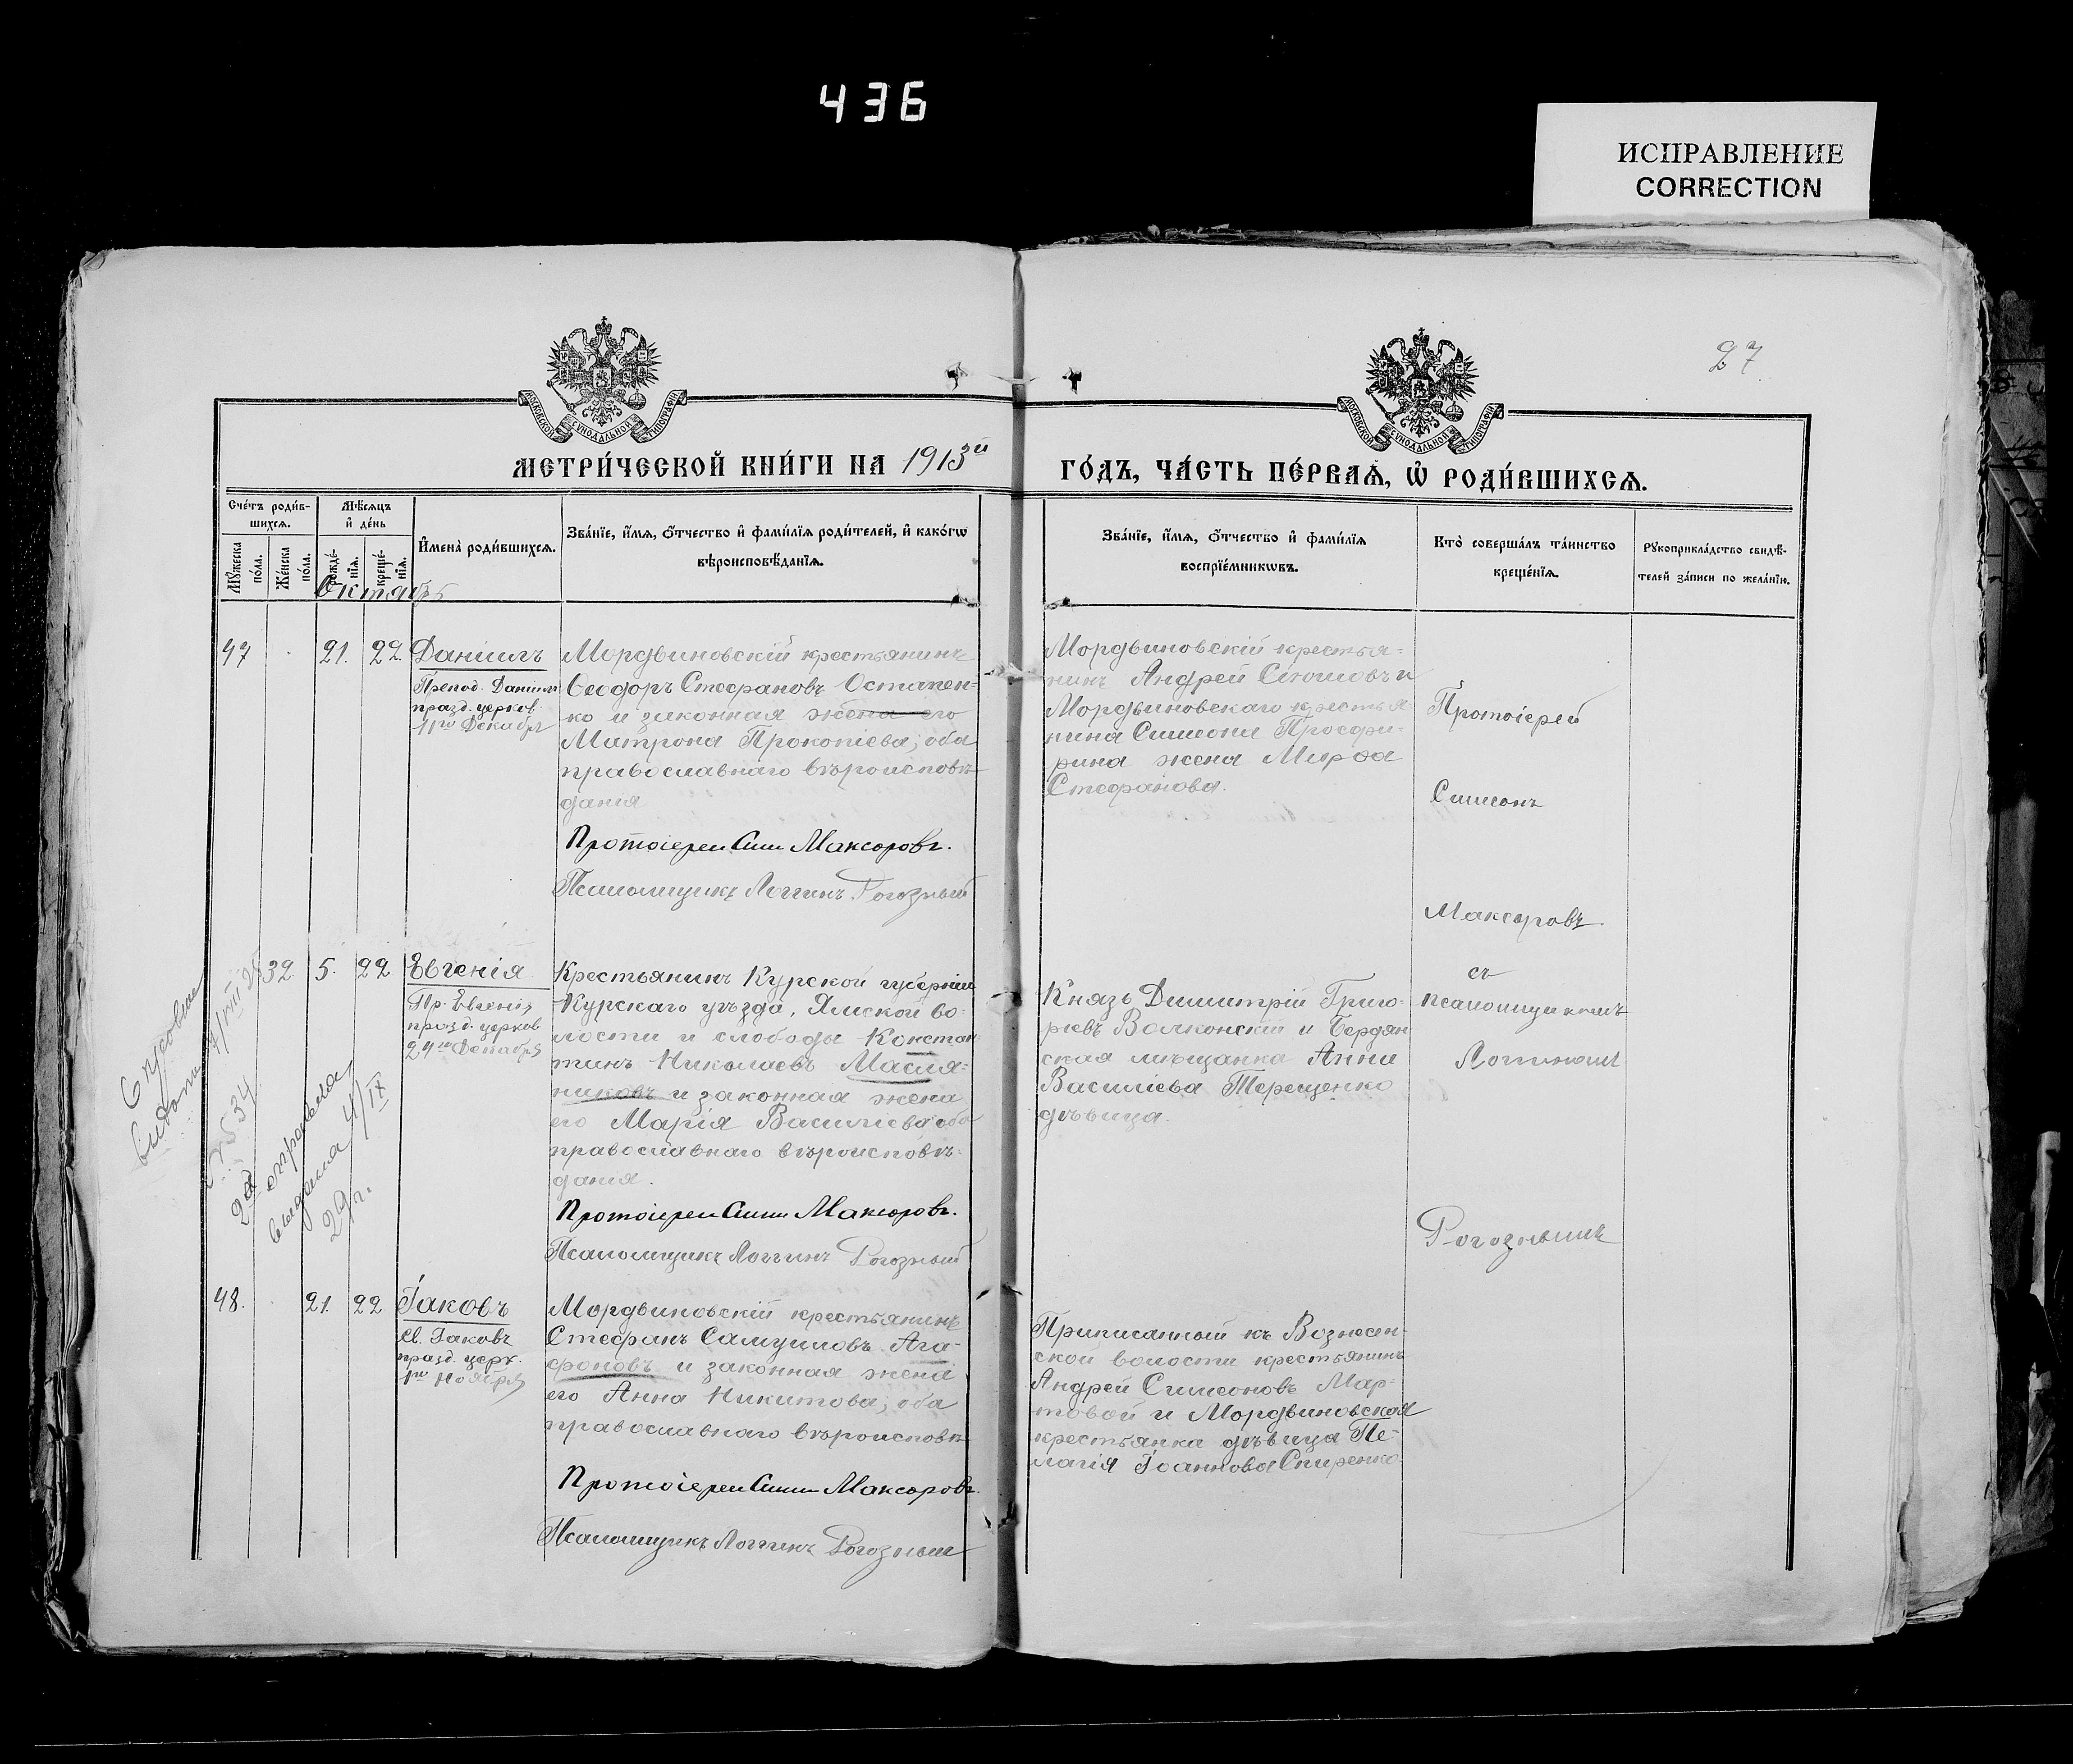 436
ИСПРАВЛЕНИЕ
CORRECTION
27
МОСКОВСКОЙ СѴНОДАЛЬНОЙ ТИПОГРАФІИ
МОСКОВСКОЙ СѴНОДАЛЬНОЙ ТИПОГРАФІИ
МЕТРИ́ЧЕСКОЙ КНИ́ГИ НА 1913й ГО́ДЪ, ЧА́СТЬ ПЕ́РВАѦ, Ѡ҆ РОДИ́ВШИХСѦ.
Сче́тъ роди́в-
шихсѧ.
Мѣ́сѧцъ
и҆ де́нь
Мꙋ́жеска
по́ла.
Же́нска
по́ла.
рожде́-
нїѧ.
креще́-
нїѧ.
И҆мена̀ роди́вшихсѧ.
Зва́нїе, и҆́мѧ, ѻ҆́тчество и҆ фами́лїѧ роди́телей, и҆ како́гѡ
вѣроисповѣ́данїѧ.
Зва́нїе, и҆́мѧ, ѻ҆́тчество и҆ фами́лїѧ
воспрїе́мникѡвъ.
Кто̀ соверша́лъ та́инство
креще́нїѧ.
Рꙋкоприкла́дство свидѣ́-
телей за́писи по жела́нїю.
Октябрь
47 21. 22. Даніилъ
Препод. Даніила
празд. церков.
11го Декабря
Мордвиновскій крестьянинъ
Ѳеодоръ Стефановъ Остапен-
ко и законная жена его
Матрона Прокопіева; оба
православнаго вѣроисповѣ-
данія
Протоіерей Сим Максоровъ.
Псаломщикъ Логгинъ Рогозный
Мордвиновскій крестья-
нинъ Андрей и
Мордвиновскаго крестья-
нина Симеона
жена Марфа
Стефанова.
Протоіерей
Симеонъ
Максоровъ
съ
псаломщикомъ
Логгиномъ
Рогознымъ
32 5. 22 Евгенія
Пр. Евгенія
празд. церков
24го Декабря
Крестьянинъ Курской губерніи
Курскаго уѣзда, Ямской во-
лости и слободы Констан-
тинъ Николаевъ Масля-
никовъ и законная жена
его Марія Василіева оба
православнаго вѣроисповѣ-
данія.
Протоіерей Сим Максоровъ.
Псаломщикъ Логгинъ Рогозный
Князь Димитрій Григо-
рьевъ Волконскій и Бердян-
ская мѣщанка Анна
Василіева Терещенко
дѣвица.
7/VIII 25
№ 34
2я справка
выдана 4/IX
29 г.
48. 21. 22 Іаковъ
Св. Іаковъ
празд. церк.
1го Ноября
Мордвиновскій крестьянинъ
Стефанъ Самуиловъ Ага-
фоновъ и законная жена
его Анна Никитова; оба
православнаго вѣроисповѣ-
Протоіерей Сим Максоровъ.
Псаломщикъ Логгинъ Рогозный
Приписанный къ Вознесен-
ской волости крестьянинъ
Андрей Симеоновъ Мар-
товой и Мордвиновская
крестьянка дѣвица Пе-
лагія Іоаннова Скиренко